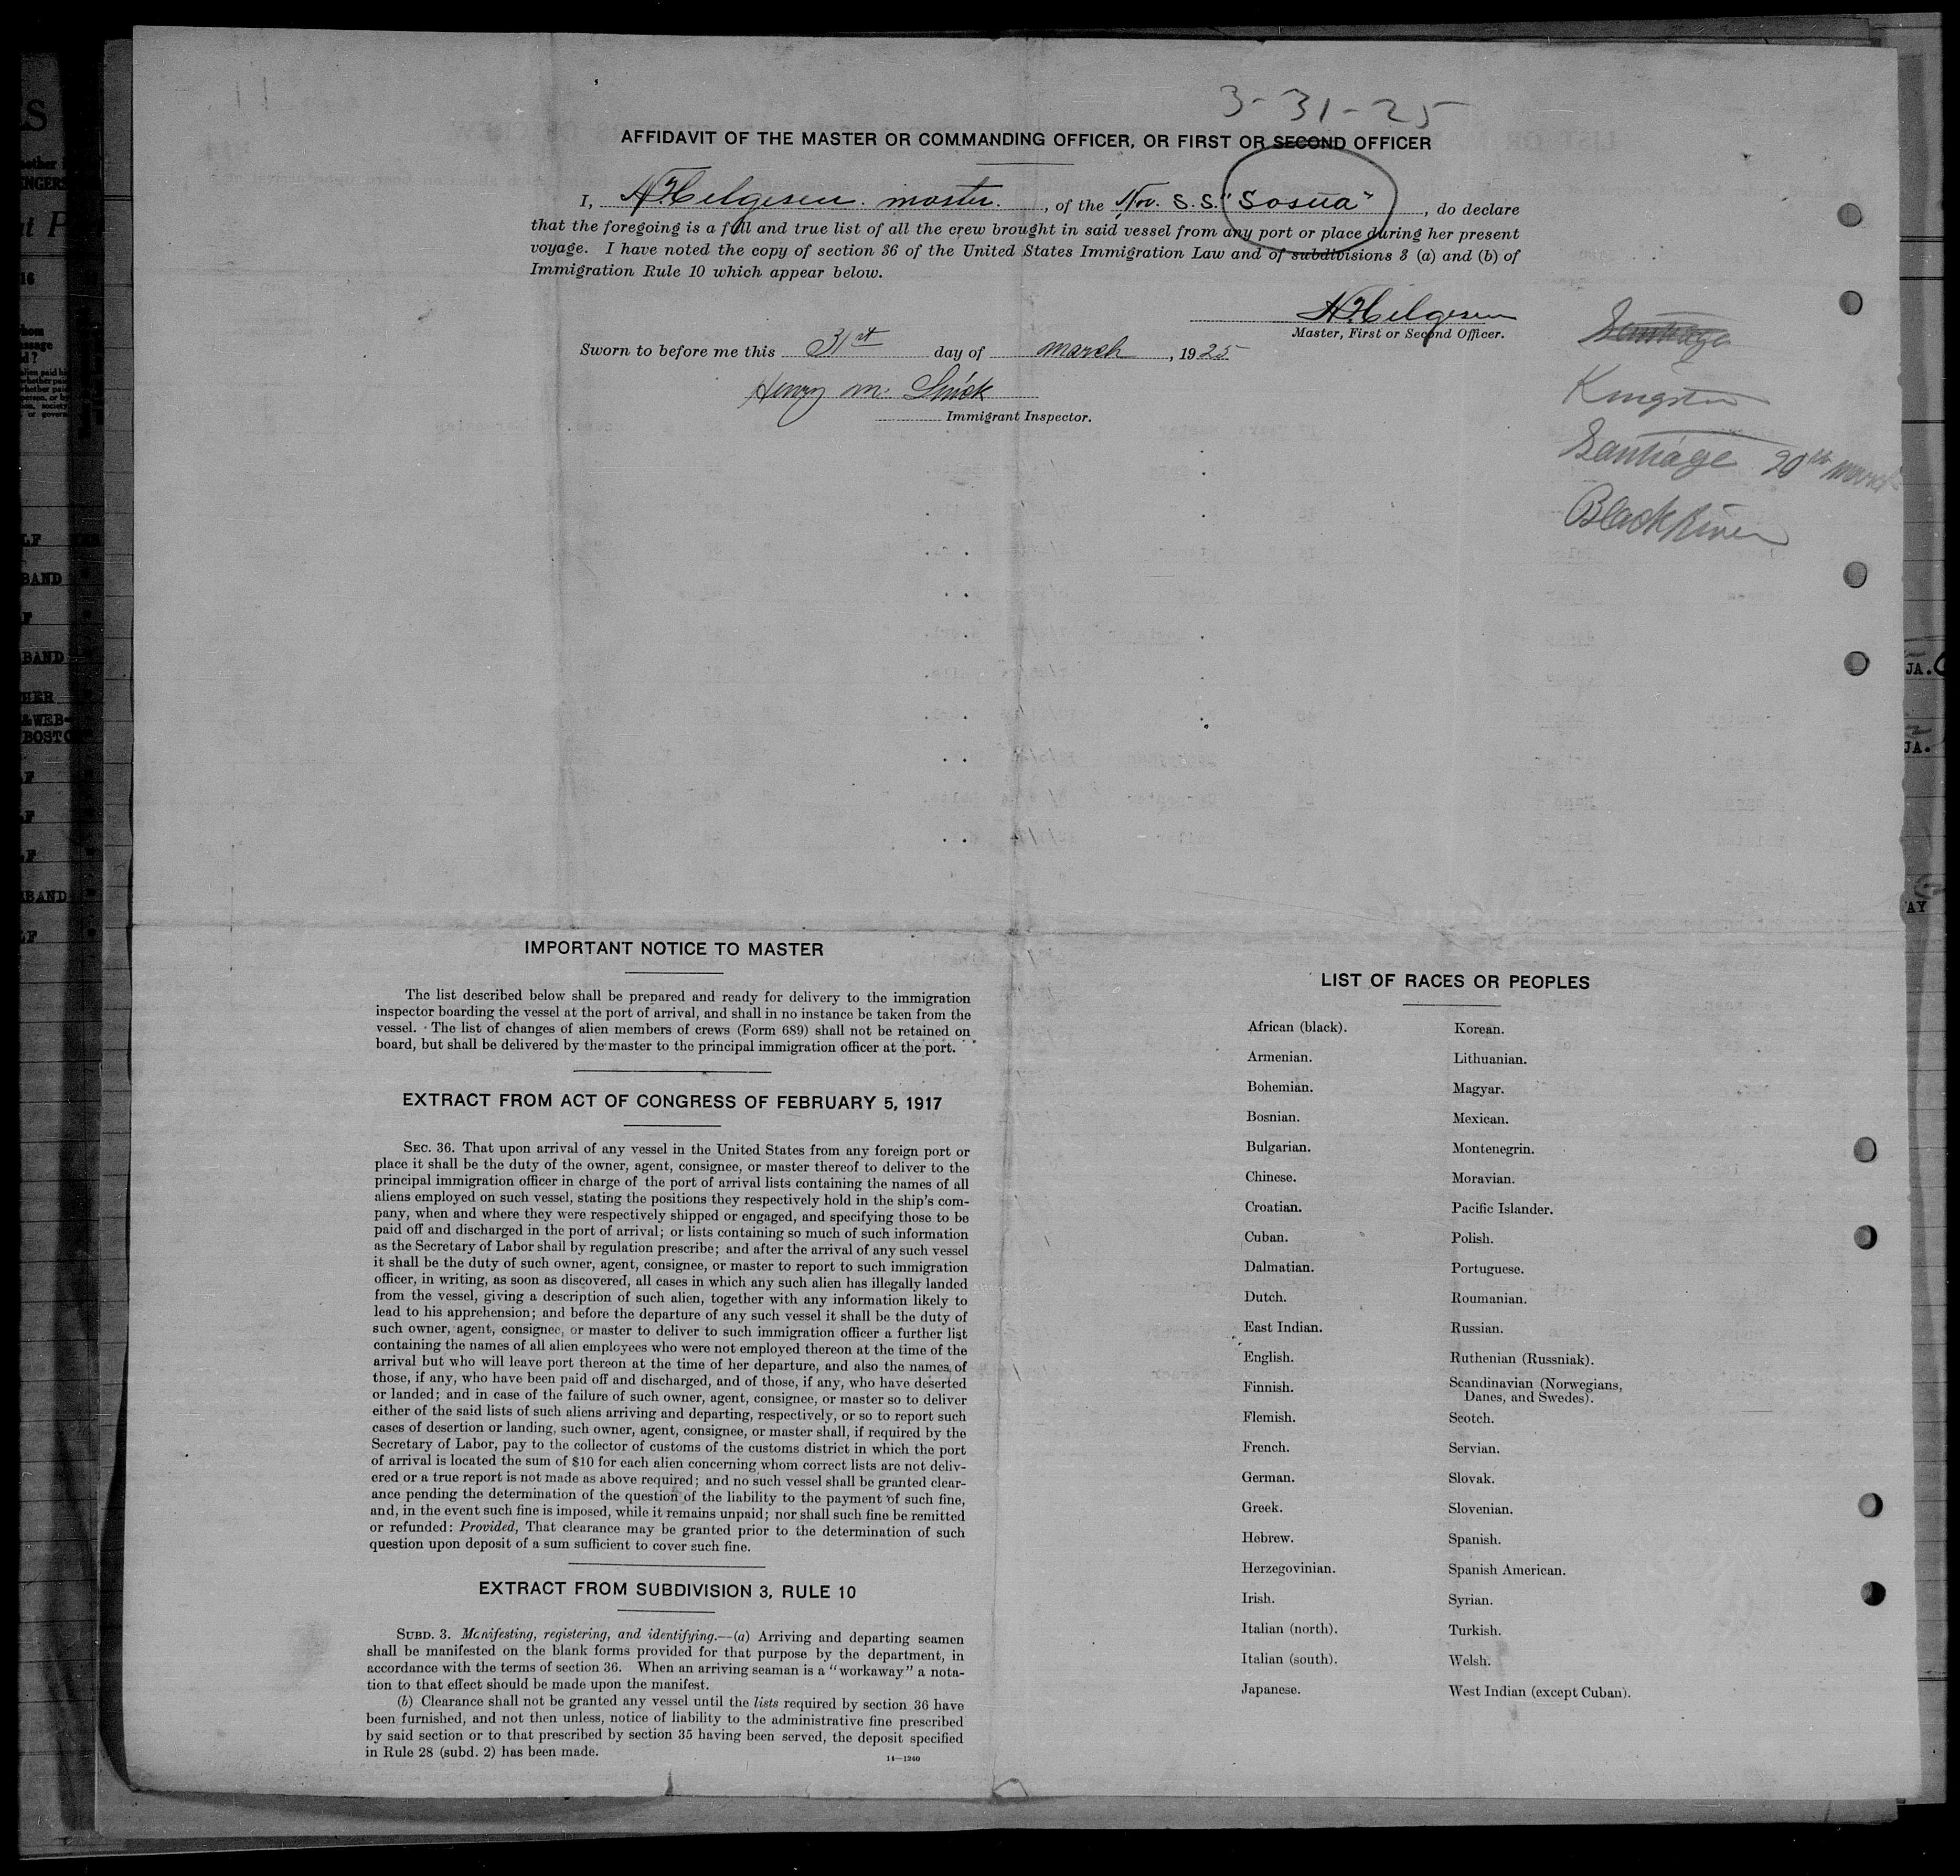 3-31-25
AFFIDAVIT OF THE MASTER OR COMMANDING OFFICER, OR FIRST OR SECOND OFFICER
I, N Helgesen. master. , of the Nor. S.S. "Sosua" , do declare
that the foregoing is a full and true list of all the crew brought in said vessel from any port or place during her present
voyage. I have noted the copy of section 36 of the United States Immigration Law and of subdivisions 3 (a) and (b) of
Immigration Rule 10 which appear below.
N Helgesen
Master, First or Second Officer.
Sworn to before me this 31st day of march , 1925
Henry M.
Immigrant Inspector.
Santiago
Kingston
Santiago 20th March
Black River
IMPORTANT NOTICE TO MASTER
The list described below shall be prepared and ready for delivery to the immigration
inspector boarding the vessel at the port of arrival, and shall in no instance be taken from the
vessel. The list of changes of alien members of crews (Form 689) shall not be retained on
board, but shall be delivered by the master to the principal immigration officer at the port.
EXTRACT FROM ACT OF CONGRESS OF FEBRUARY 5, 1917
SEC. 36. That upon arrival of any vessel in the United States from any foreign port or
place it shall be the duty of the owner, agent, consignee, or master thereof to deliver to the
principal immigration officer in charge of the port of arrival lists containing the names of all
aliens employed on such vessel, stating the positions they respectively hold in the ship's com-
pany, when and where they were respectively shipped or engaged, and specifying those to be
paid off and discharged in the port of arrival; or lists containing so much of such information
as the Secretary of Labor shall by regulation prescribe; and after the arrival of any such vessel
it shall be the duty of such owner, agent, consignee, or master to report to such immigration
officer, in writing, as soon as discovered, all cases in which any such alien has illegally landed
from the vessel, giving a description of such alien, together with any information likely to
lead to his apprehension; and before the departure of any such vessel it shall be the duty of
such owner, agent, consignee, or master to deliver to such immigration officer a further list
containing the names of all alien employees who were not employed thereon at the time of the
arrival but who will leave port thereon at the time of her departure, and also the names of
those, if any, who have been paid off and discharged, and of those, if any, who have deserted
or landed; and in case of the failure of such owner, agent, consignee, or master so to deliver
either of the said lists of such aliens arriving and departing, respectively, or so to report such
cases of desertion or landing, such owner, agent, consignee, or master shall, if required by the
Secretary of Labor, pay to the collector of customs of the customs district in which the port
of arrival is located the sum of $10 for each alien concerning whom correct lists are not deliv-
ered or a true report is not made as above required; and no such vessel shall be granted clear-
ance pending the determination of the question of the liability to the payment of such fine,
and, in the event such fine is imposed, while it remains unpaid; nor shall such fine be remitted
or refunded: Provided, That clearance may be granted prior to the determination of such
question upon deposit of a sum sufficient to cover such fine.
EXTRACT FROM SUBDIVISION 3, RULE 10
SUBD. 3. Manifesting, registering, and identifying.—(a) Arriving and departing seamen
shall be manifested on the blank forms provided for that purpose by the department, in
accordance with the terms of section 36. When an arriving seaman is a "workaway" a nota-
tion to that effect should be made upon the manifest.
(b) Clearance shall not be granted any vessel until the lists required by section 36 have
been furnished, and not then unless, notice of liability to the administrative fine prescribed
by said section or to that prescribed by section 35 having been served, the deposit specified
in Rule 28 (subd. 2) has been made.
14—1240
LIST OF RACES OR PEOPLES
African (black).
Armenian.
Bohemian.
Bosnian.
Bulgarian.
Chinese.
Croatian.
Cuban.
Dalmatian.
Dutch.
East Indian.
English.
Finnish.
Flemish.
French.
German.
Greek.
Hebrew.
Herzegovinian.
Irish.
Italian (north).
Italian (south).
Japanese.
Korean.
Lithuanian.
Magyar.
Mexican.
Montenegrin.
Moravian.
Pacific Islander.
Polish.
Portuguese.
Roumanian.
Russian.
Ruthenian (Russniak).
Scandinavian (Norwegians,
Danes, and Swedes).
Scotch.
Servian.
Slovak.
Slovenian.
Spanish.
Spanish American.
Syrian.
Turkish.
Welsh.
West Indian (except Cuban).